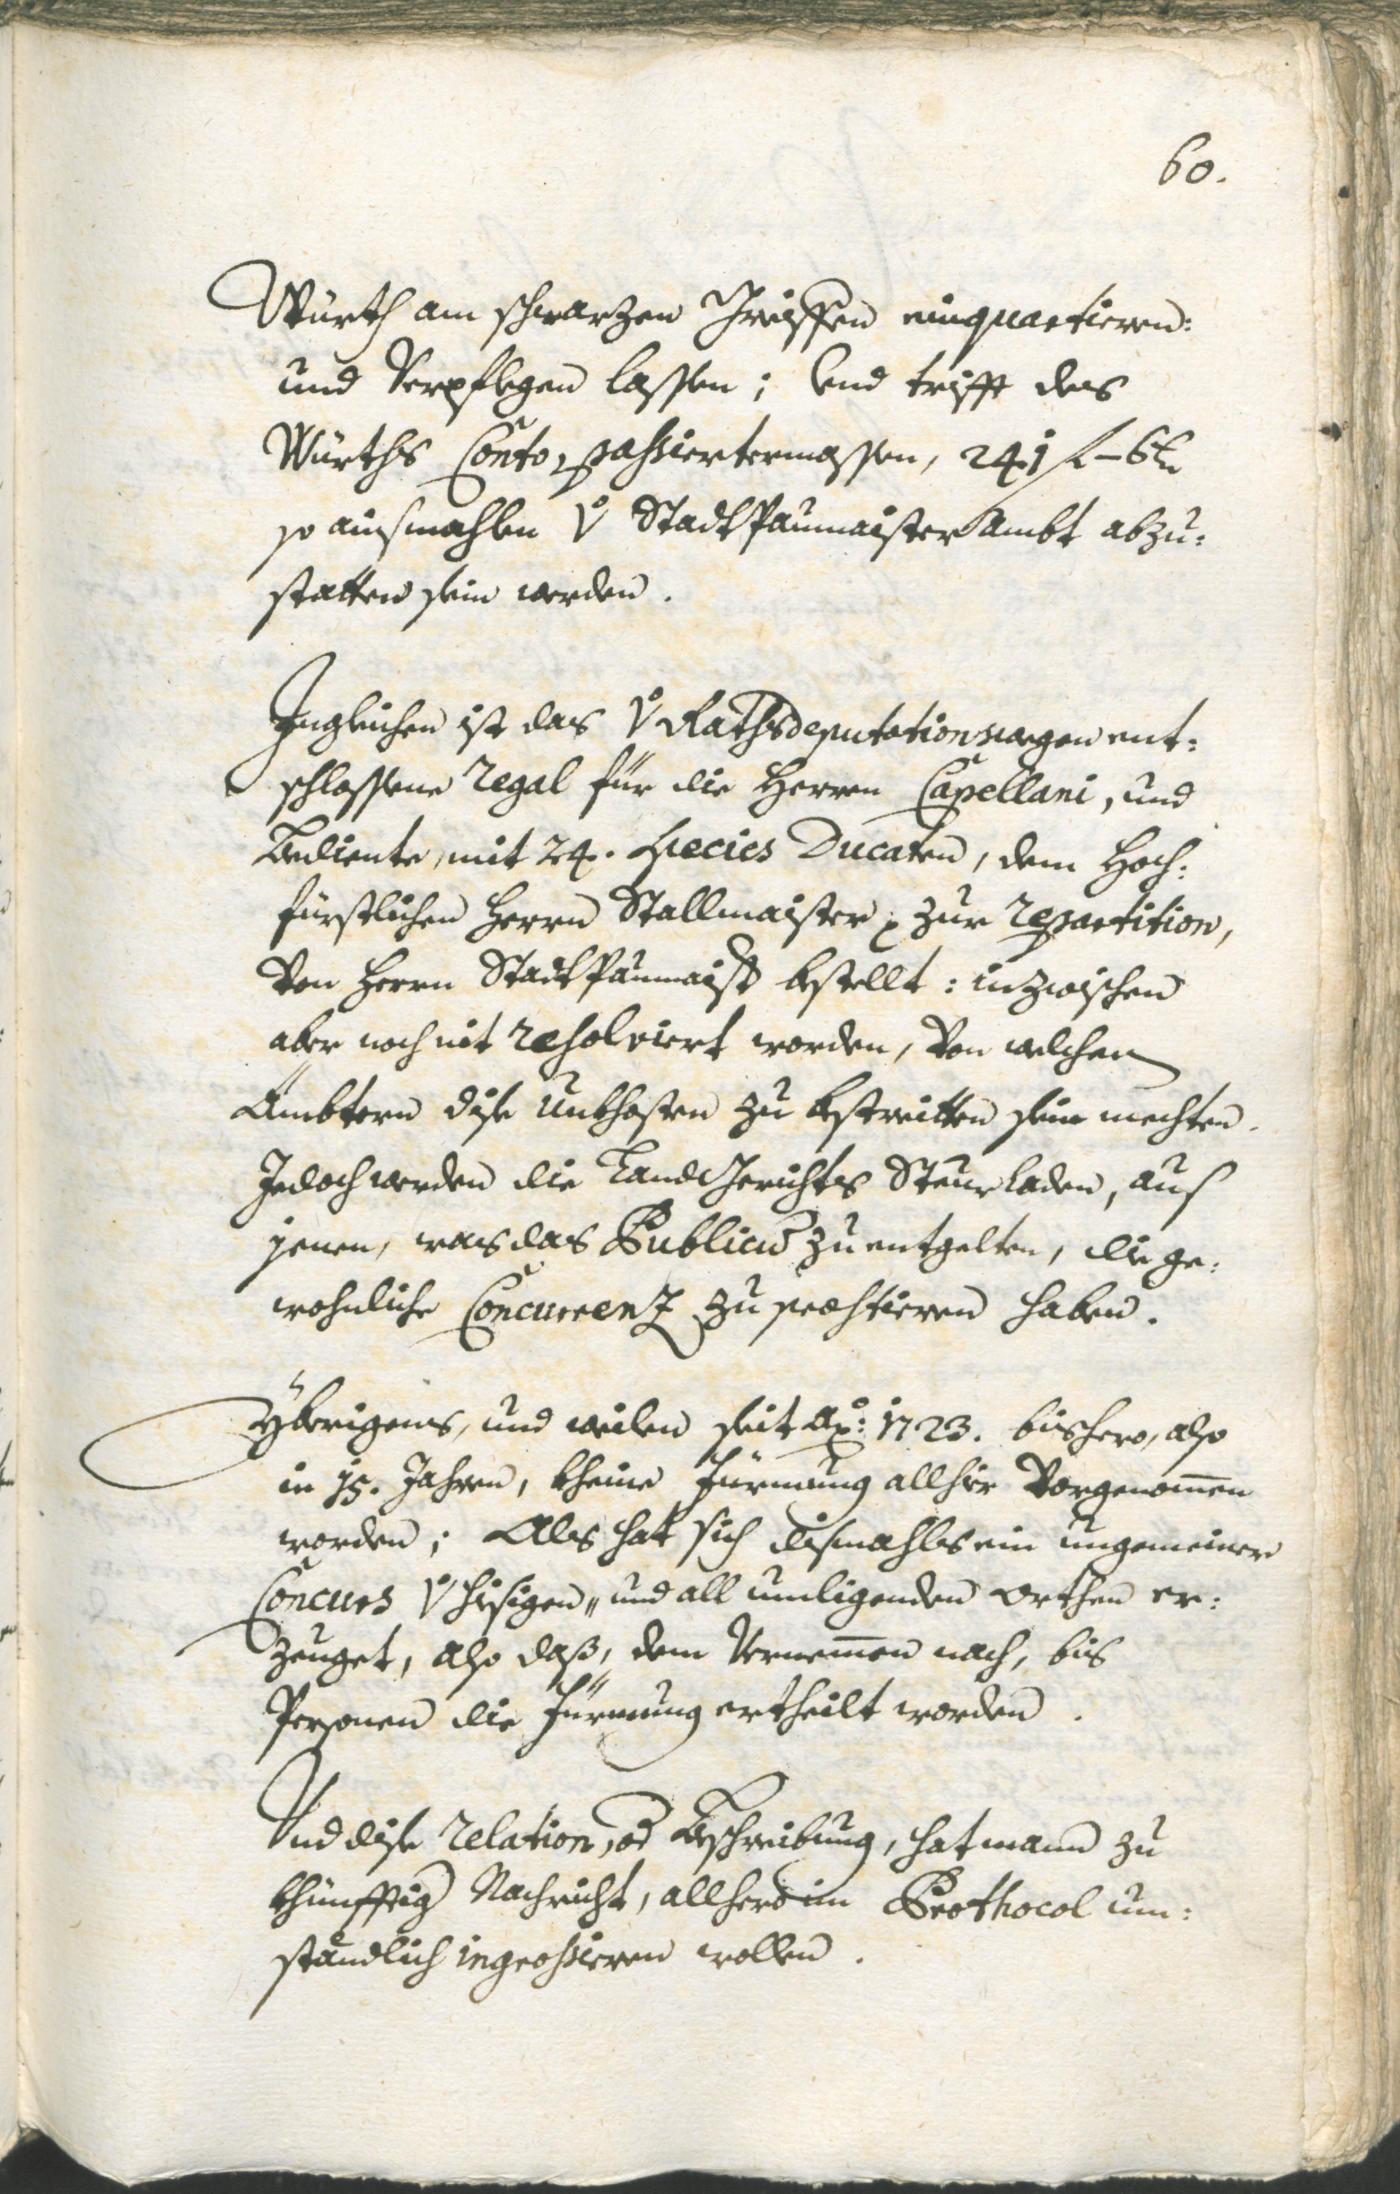 60.
Würth am schwarzen Greiffen einquartieren:
und Verpflegen lassen; Und trifft des
Würths Conto, passiertermassen, 241 f – 6 k
so ainsmahlen v̊ Stadt Paumaister Ambt abzu:
statten sein werden.
Ingleichen ist das v̊ Rathsdeputationswegen ent:
schlossene Regal für die Herren Capellani, und
Bediente, mit 24. Species Ducaten, dem Hoch:
fürstlichen Herrn Stallmaister, zur repartition,
Von Herrn Stadt Paumaister bestellt: inzwischen
aber noch nit resolviert worden, Von welchen
Ämbtern dise Unkhosten zu bestreitten sein mechten.
Jedoch werden die LandtGerichts Steur laden, auf
jenen, was das Publicum zu entgelten, die ge:
wohnliche Concurrenz zu praestieren haben.
Yberigens, und weilen seit Aõ: 1723. bishero, also
in 15. Jahren, kheine Fürmung allhier Vorgenom̄en
worden; Als hat sich dismahls ein ungemeiner
Concurs v̊ hisigen„ und all umligenden Orthen er:
zeuget, also daß, dem Vernem̄en nach, bis
Personen die Fürmung ertheilt worden.
Und dise relation, od Beschreibung, hat mann zu
khünfftig Nachricht, allhero im Prothocol um:
ständlich ingrossieren wollen.